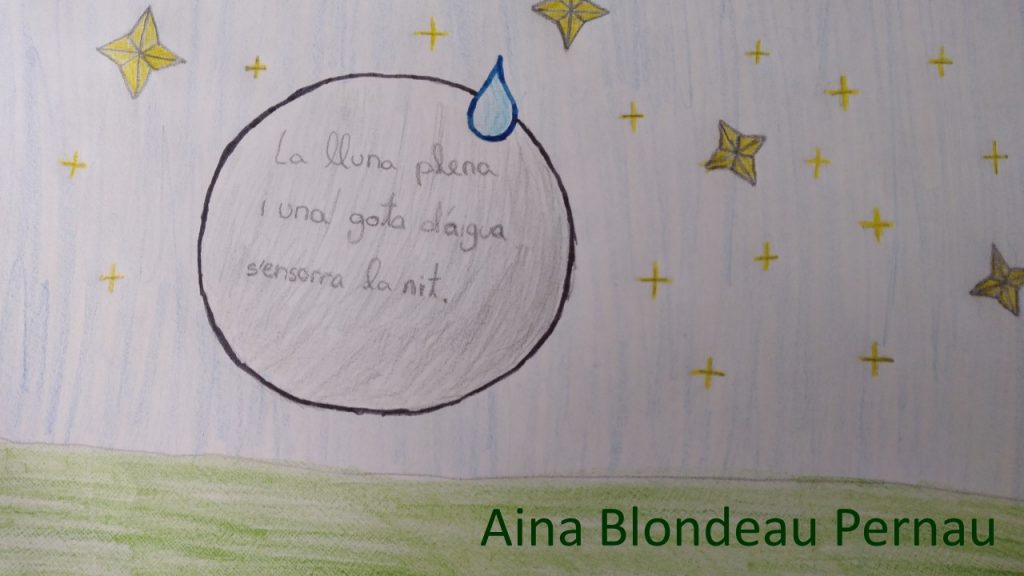 La lluna plena
i una gota d'aigua
s'ensorra la nit.
Aina Blondeau Pernau